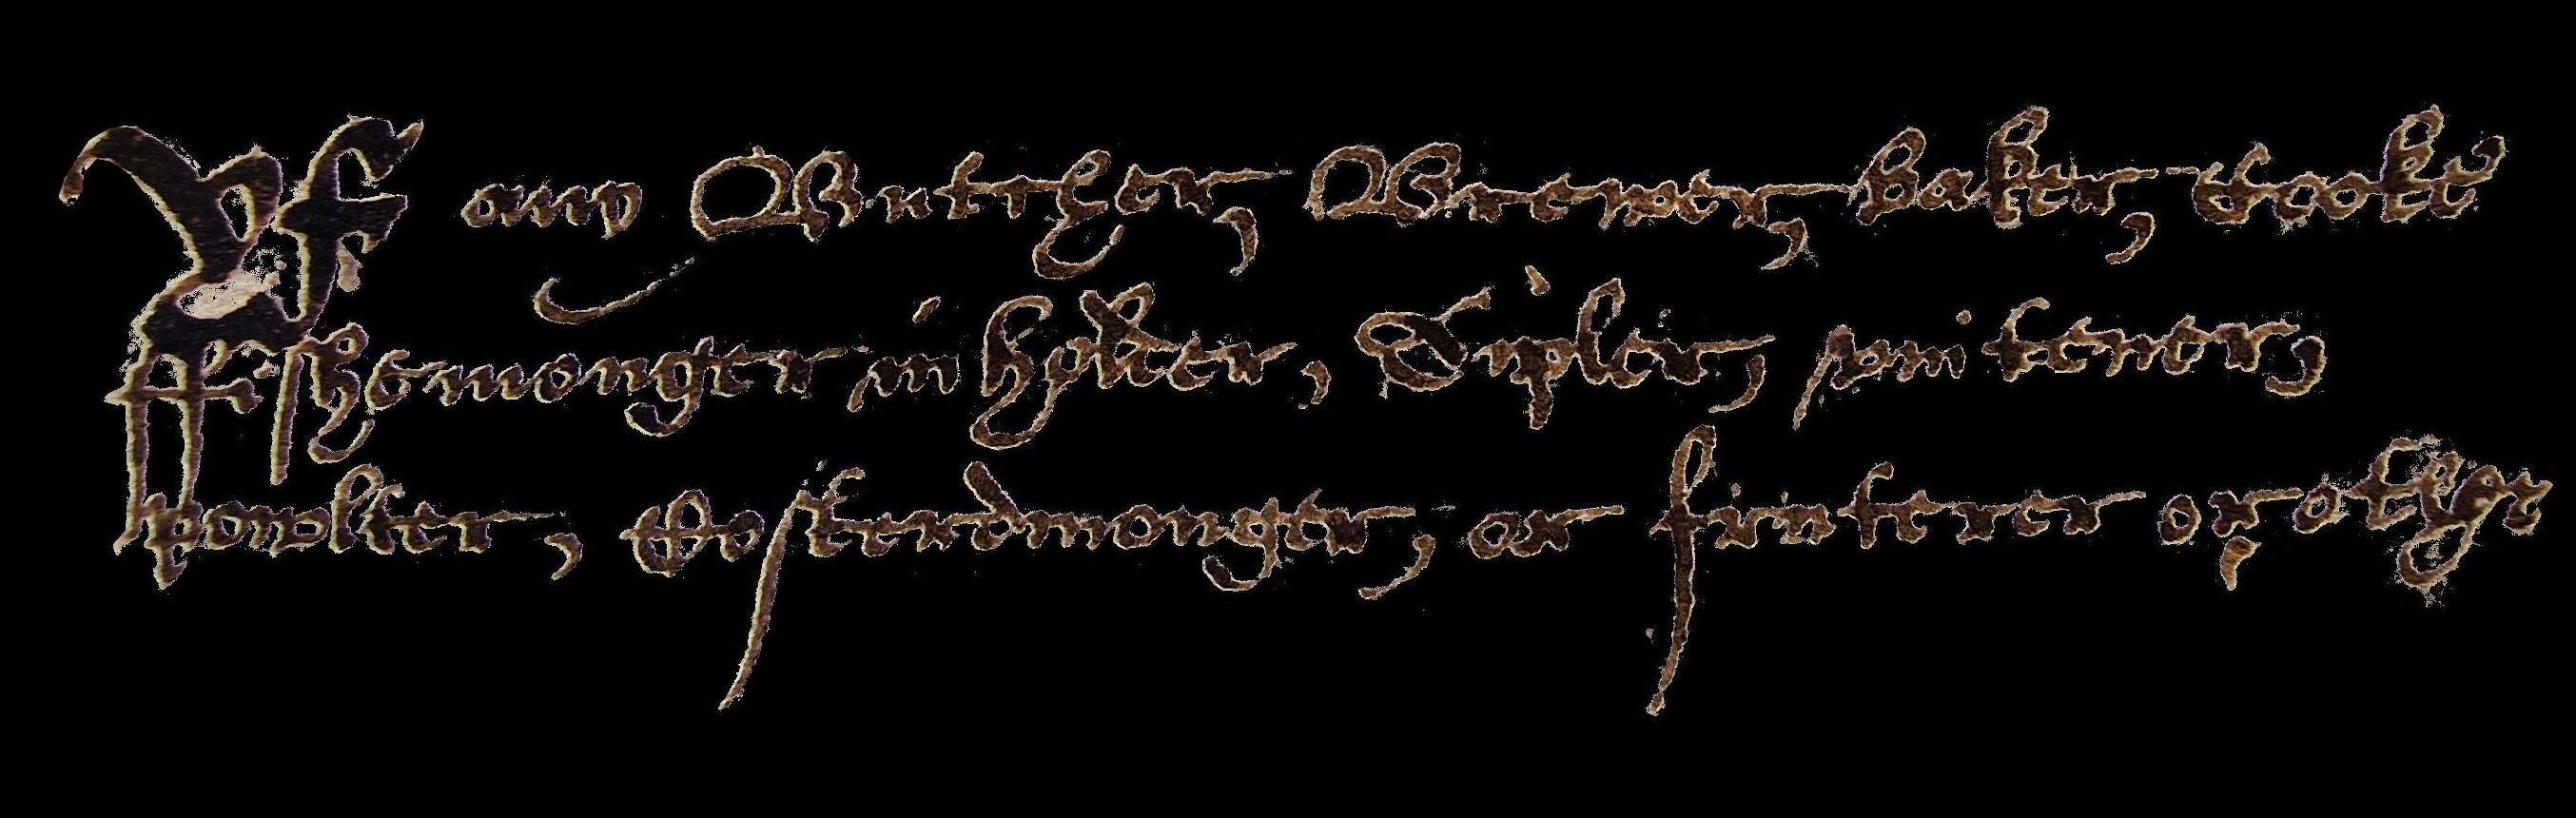 Yf any Butcher, Brewer, baker, Cooke
ffishemonger inhylter, Tipler, vinitener,
powlter, Costerdmonger, or fruiterer or other